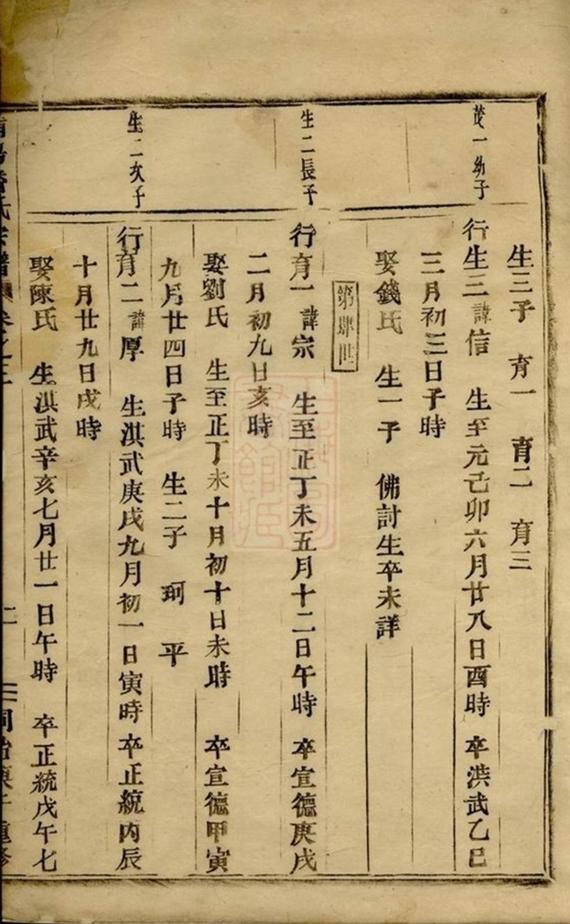 生三子 育一 育二 育三
茂一幼子
行生三諱信 生至元己卯六月廿八日酉時 卒洪武乙巳
三月初三日子時
娶錢氏 生一子 佛討生卒未詳
第肆世
生二長子
行育一諱宗 生至正丁未五月十二日午時 卒宣德庚戌
二月初九日亥時
娶劉氏 生至正丁未十月初十日未時 卒宣德甲寅
九月廿四日子時 生二子 珂 平
生二次子
行育二諱厚 生淇武庚戌九月初一日寅時 卒正統丙辰
十月廿九日戌時
娶陳氏 生淇武辛亥七月廿一日午時 卒正統戊午七
氏宗譜 卷之三 二 同治庚午重修